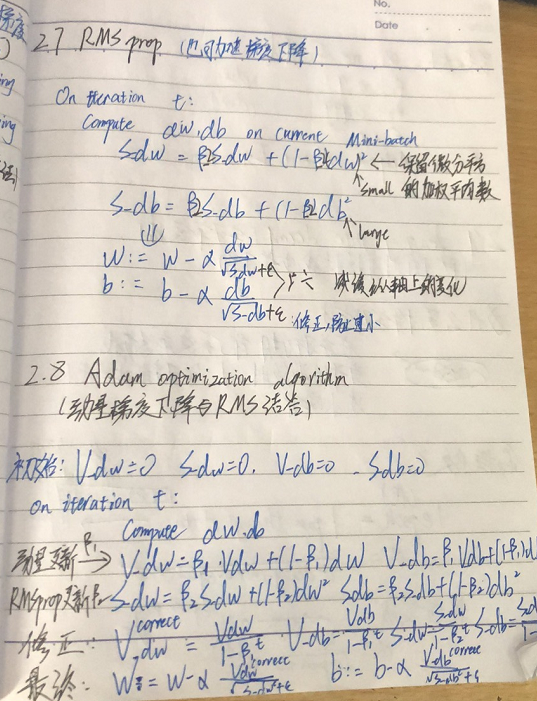 No.
Date
2.7 RMS prop (也可加速梯度下降)
On iteration t:
Compute dw, db on current Mini-batch
S-dw = β2S-dw + (1-β2)dw² ← 保留微分平方
↑small 的加权平均数
S-db = β2S-db + (1-β2)db²
↑large
⇓
w := w - α dw/√S-dw+ε
b := b - α db/√S-db+ε
减缓 轴上的变化
修正,防止过小
2.8 Adam optimization algorithm
(动量梯度下降与RMS结合)
初始: V-dw=0 S-dw=0. V-db=0 . S-db=0
on iteration t:
Compute dw.db
动量更新 β₁→ V-dw = β₁·Vdw+(1-β₁)dw V-db=β₁Vdb+(1-β₁)d
RMSprop更新β₂ S-dw=β₂S-dw+(1-β₂)dw² Sdb=β₂Sdb+(1-β₂)db²
修正: V-dw^correct = Vdw/1-β₁^t . V-db=Vdb/1-β₁^t S-dw=S-dw/1-β₂^t S-db=Sd/1-
最终: W := W-α Vdw^correct/√S-dw²+ε b := b-α V-db^correct/√S-db²+ε